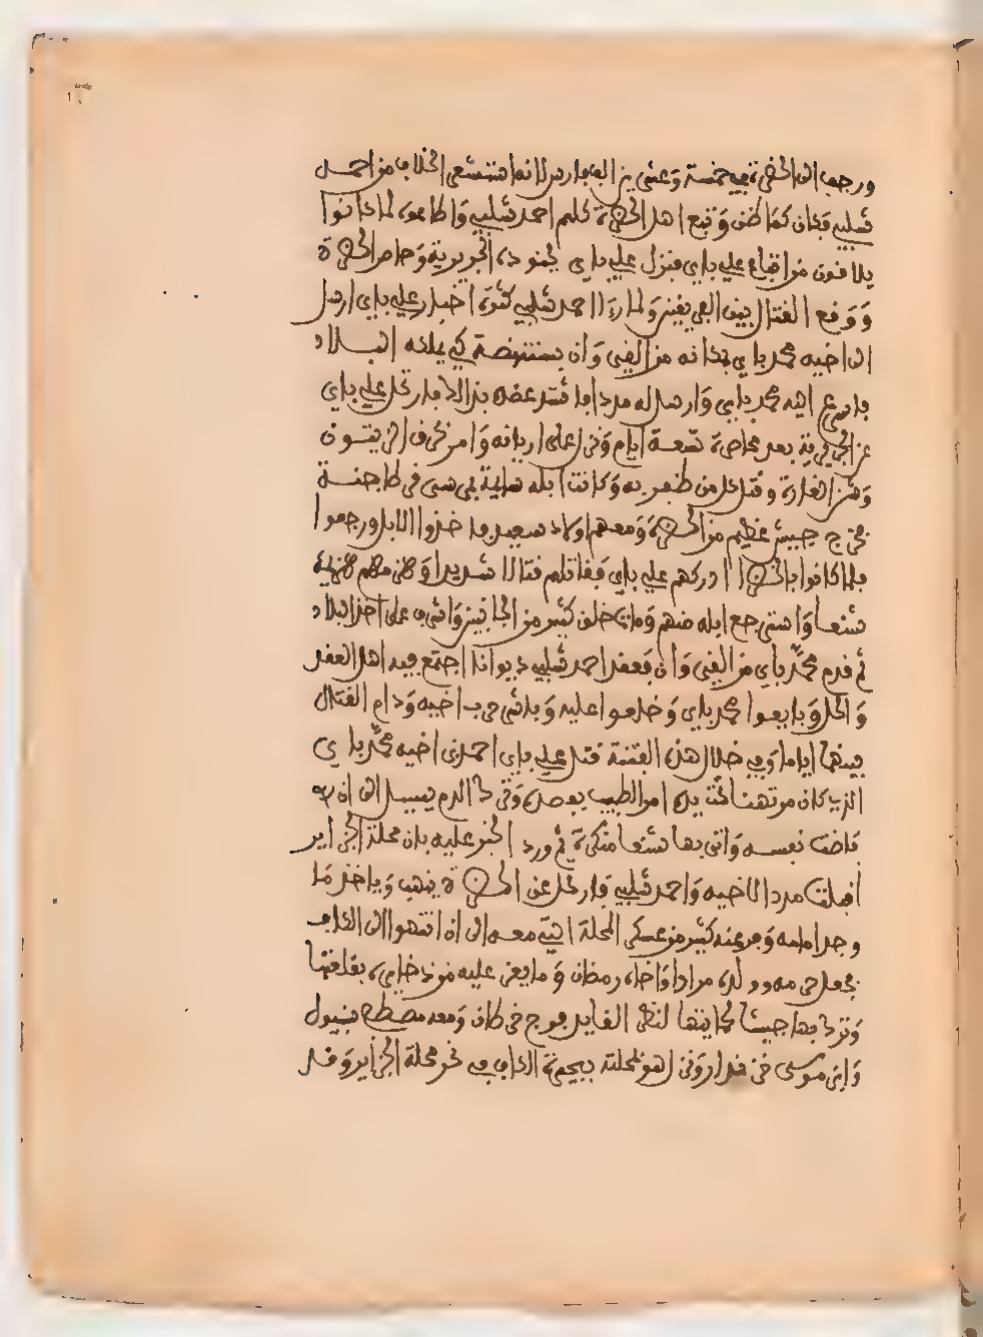 ورجع الى الحضرة في خمسة وعشرين الف فارس لانه استشعر الخلاف من احمد
شلبي فكان كما ظن وتبع اهل الحضرة كلهم احمد شلبي واطاعوه لما كانوا
يلاقون من اتباع علي باي فنزل علي باي بجنوده الحريرية وحاصر الحضرة
ووقع القتال بين الفريقين ولما رءا احمد شلبي كثرة اخبار علي باي ارسل
الى اخيه محمد باي بمكانه من القيروان يستنهضه كي يملكه البلاد
فاسرع اليه محمد باي وارسل له مددا فاشتد عضده بذلك فارتحل علي باي
عن الحريرية بعد محاصرة تسعة ايام ونزل على اريانه وامر بحرق الزيتون
وشن الغارة وقتل كل من ظفر به وكانت ابله سايبة بمرسى قرطاجنة
فخرج جيش عظيم من الحضرة ومعهم اولاد سعيد فاخذوا الابل ورجعوا
فلما كانوا بالحضرا ادركهم علي باي فقاتلهم قتالا شديدا وهزمهم هزيمة
شنعا واسترجع ابله منهم ومات خلق كثير من الجانبين واشرف على اخذ البلاد
ثم قدم محمد باي من القيروان فعقد احمد شلبي ديوانا اجتمع فيه اهل العقد
والحل وبايعوا محمد باي وخلعوا عليه وباشر حرب اخيه ودام القتال
بينهما اياما وفي خلال هذه الفتنة قتل علي باي احمد بن اخيه محمد باي
الذي كان مرتهنا تحت يده امر الطبيب بفصده وترك الدم يسيل الى ان
فاضت نفسه واتى بها شنعا منكرة ثم ورد الخبر عليه بان محلة الجزاير
اقبلت مددا لاخيه واحمد شلبي فارتحل عن الحضرة ينهب وياخذ ما
وجد امامه وفر عنه كثير من عسكر المحلة التي معه الى ان انتهوا الى الكاف
فجعل حرمه وولده مرادا واخاه رمضان وما يعز عليه من ذخايره بقلعتها
وترك بها جيشا لحمايتها لنظر القايد فوج خرطان ومعه مصطفى سبنيول
وابن موسى ونزل هو بمحلته بفحص الكاف في نحر محلة الجزاير وقد